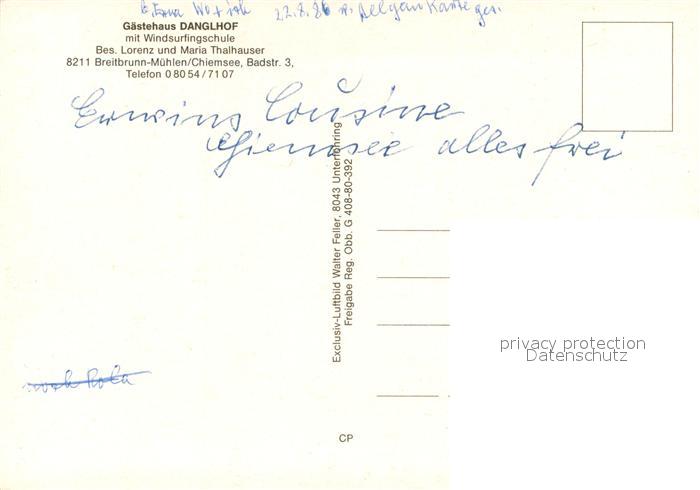 22.8.86
Gästehaus DANGLHOF
mit Windsurfingschule
Bes. Lorenz und Maria Thalhauser
8211 Breitbrunn-Mühlen/Chiemsee, Badstr. 3,
Telefon 0 80 54 / 71 07
Erwins Cousine
Chiemsee alles frei
Exclusiv-Luftbild Walter Feller, 8043 Unterföhring
Freigabe Reg. Obb. G 408-80-392
privacy protection
Datenschutz
CP